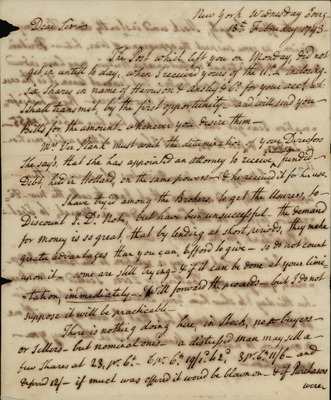 New York Wednesday Eveg
13th February 1793
Dear Sir
The Post which left you on Monday, did not
get in until to day, when I received yours of the 11th inclosing
Six Shares in name of Harrison & Ansley & Co for your acct which
Shall transmit, by the first opportunity and will send you
Bills for the amount whenever you desire them
Mrs Van Staak must wait the determination of your Directors
She says, that she has appointed an attorney to receive funded
Debt, held in Holland, on the same power & he received it for her use
I have try'd among the Brokers to get the Usurers, to
Discount Note, but have been unsuccessful. the demand
for money is so great, that by lending at short periods, they make
greater advantages than you can, afford to give so do not count
upon it some are still trying & if it can be done at your limi=
tation, immediately will forward the proceeds but I do not
suppose it will be practicable
There is nothing doing here, in Stock, no buyers
or Sellers but nominal ones a distressed man may sell a
few Shares at and
defered 12/ if much was offered it would be blown on & if Purchases
were